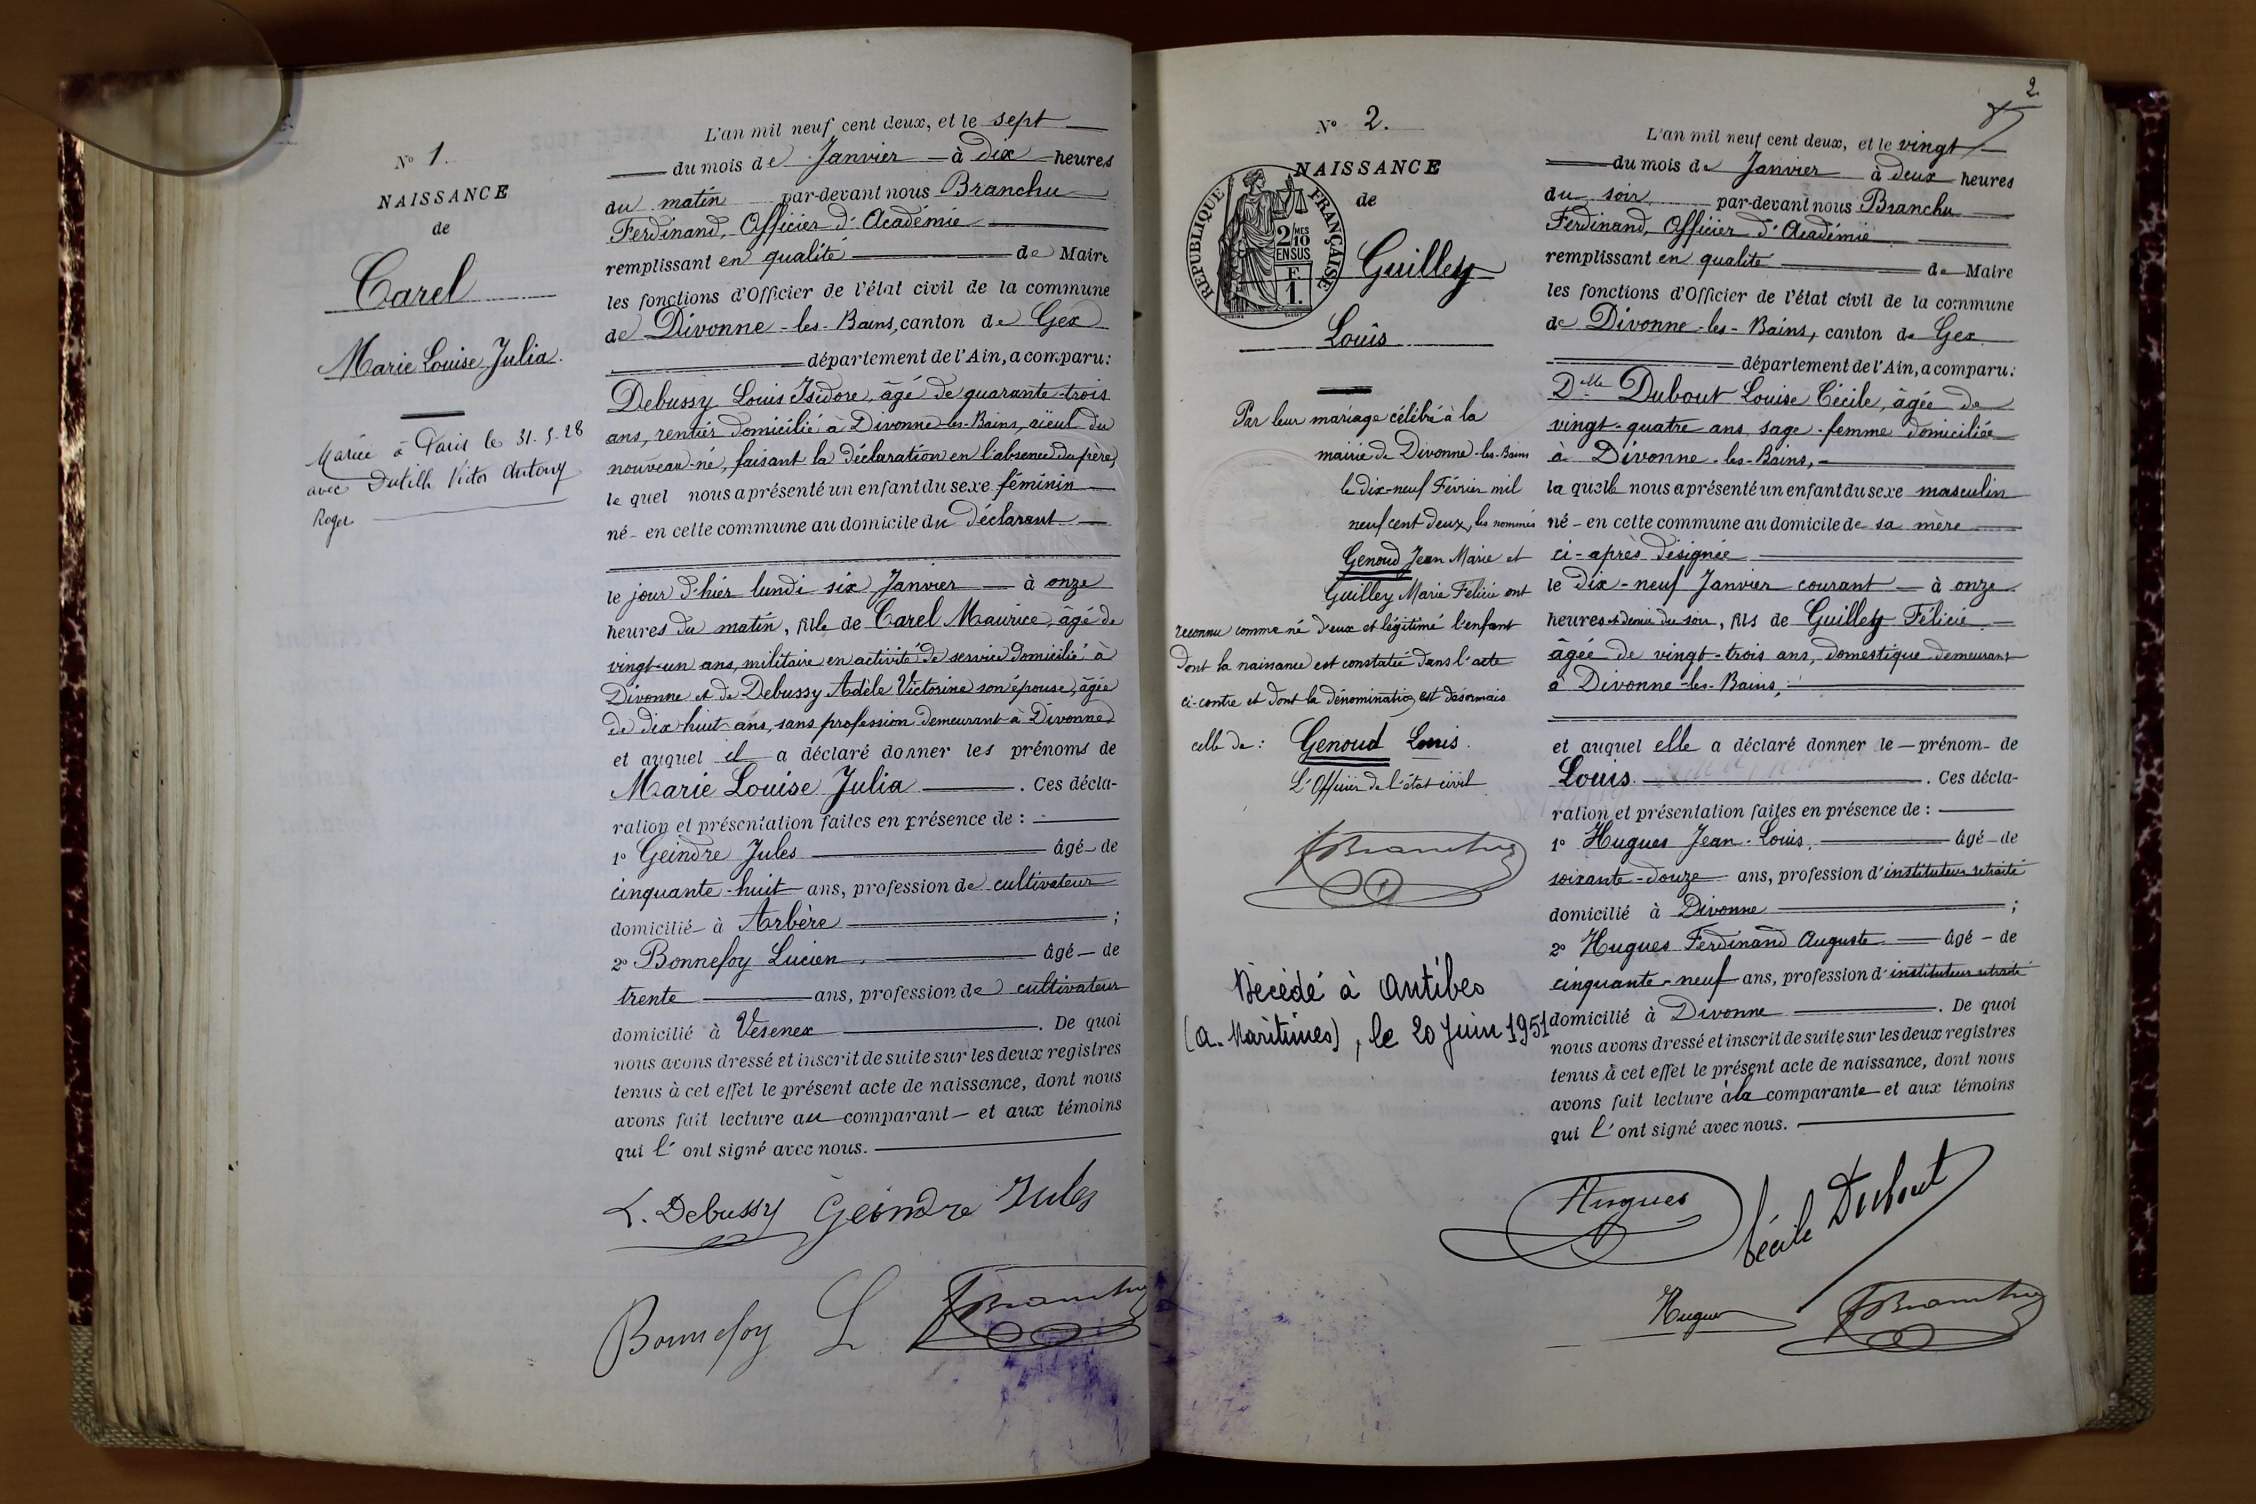 N° 1.
NAISSANCE
de
Carel
Marie Louise Julia.
Mariée à Paris le 31.5.28
avec Dutilh Victor Antony
Roger
L'an mil neuf cent deux, et le sept
du mois de Janvier à dix heures
du matin par-devant nous Branchu
Ferdinand, Officier d'Académie
remplissant en qualité de Maire
les fonctions d'Officier de l'état civil de la commune
de Divonne-les-Bains, canton de Gex
département de l'Ain, a comparu:
Debussy Louis Isidore, âgé de quarante-trois
ans, rentier domicilié à Divonne-les-Bains, aïeul du
nouveau-né, faisant la déclaration en l'absence du père,
le quel nous a présenté un enfant du sexe féminin
né - en cette commune au domicile du déclarant
le jour d'hier lundi six Janvier à onze
heures du matin, fille de Carel Maurice, âgé de
vingt-un ans, militaire en activité de service domicilié à
Divonne et de Debussy Adèle Victorine son épouse, âgée
de dix-huit ans, sans profession demeurant à Divonne
et auquel il a déclaré donner les prénoms de
Marie Louise Julia . Ces décla-
ration et présentation faites en présence de :
1° Geindre Jules âgé de
cinquante-huit ans, profession de cultivateur
domicilié à Arbère ;
2° Bonnefoy Lucien . âgé de
trente ans, profession de cultivateur
domicilié à Vésenex . De quoi
nous avons dressé et inscrit de suite sur les deux registres
tenus à cet effet le présent acte de naissance, dont nous
avons fait lecture au comparant - et aux témoins
qui l'ont signé avec nous.
L. Debussy Geindre Jules
Bonnefoy L FBranchu
2.
N° 2.
NAISSANCE
de
RÉPUBLIQUE FRANÇAISE
2/10 MES
EN SUS
F.
1.
Guilley
Louis
Par leur mariage célébré à la
mairie de Divonne-les-Bains
le dix-neuf Février mil
neuf cent deux, les nommés
Genoud Jean Marie et
Guilley Marie Félicie ont
reconnu comme né d'eux et légitimé l'enfant
dont la naissance est constatée dans l'acte
ci-contre et dont la dénomination est désormais
celle de : Genoud Louis.
L'Officier de l'état civil
FBranchu
Décédé à Antibes
(A. Maritimes), le 20 Juin 1951
L'an mil neuf cent deux, et le vingt
du mois de Janvier à deux heures
du soir par-devant nous Branchu
Ferdinand, Officier d'Académie
remplissant en qualité de Maire
les fonctions d'Officier de l'état civil de la commune
de Divonne-les-Bains, canton de Gex
département de l'Ain, a comparu:
Dlle Dubout Louise Cécile, âgée de
vingt-quatre ans, sage-femme domiciliée
à Divonne-les-Bains,
la quelle nous a présenté un enfant du sexe masculin
né - en cette commune au domicile de sa mère
ci-après désignée
le dix-neuf Janvier courant à onze
heures et demie du soir, fils de Guilley Félicie
âgée de vingt-trois ans, domestique demeurant
à Divonne-les-Bains,
et auquel elle a déclaré donner le - prénom - de
Louis . Ces décla-
ration et présentation faites en présence de :
1° Hugues Jean-Louis, âgé de
soixante-douze ans, profession d'instituteur retraité
domicilié à Divonne ;
2° Hugues Ferdinand Auguste âgé - de
cinquante-neuf ans, profession d'instituteur retraité
domicilié à Divonne . De quoi
nous avons dressé et inscrit de suite sur les deux registres
tenus à cet effet le présent acte de naissance, dont nous
avons fait lecture à la comparante et aux témoins
qui l'ont signé avec nous.
Hugues Cécile Dubout
Hugues FBranchu